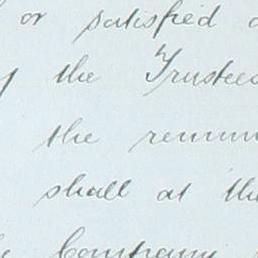 or satisfied
the Trustees
the
shall at the
Company